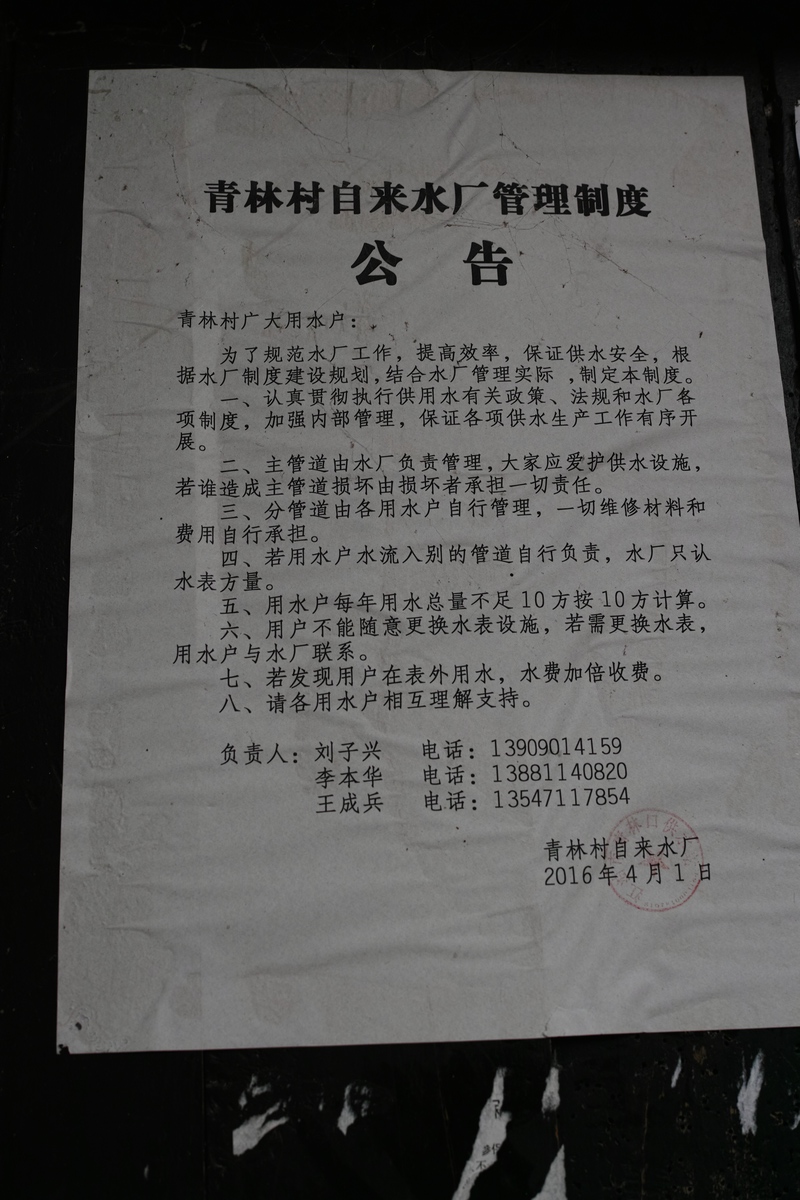 青林村自来水厂管理制度
公 告
青林村广大用水户：
为了规范水厂工作，提高效率，保证供水安全，根
据水厂制度建设规划,结合水厂管理实际 ,制定本制度。
一、认真贯彻执行供用水有关政策、法规和水厂各
项制度，加强内部管理，保证各项供水生产工作有序开
展。
二、主管道由水厂负责管理,大家应爱护供水设施，
若谁造成主管道损坏由损坏者承担一切责任。
三、分管道由各用水户自行管理，一切维修材料和
费用自行承担。
四、若用水户水流入别的管道自行负责，水厂只认
水表方量。
五、用水户每年用水总量不足10方按10方计算。
六、用户不能随意更换水表设施，若需更换水表，
用水户与水厂联系。
七、若发现用户在表外用水，水费加倍收费。
八、请各用水户相互理解支持。
负责人：刘子兴 电话：13909014159
李本华 电话：13881140820
王成兵 电话：13547117854
青林村自来水厂
2016年4月1日